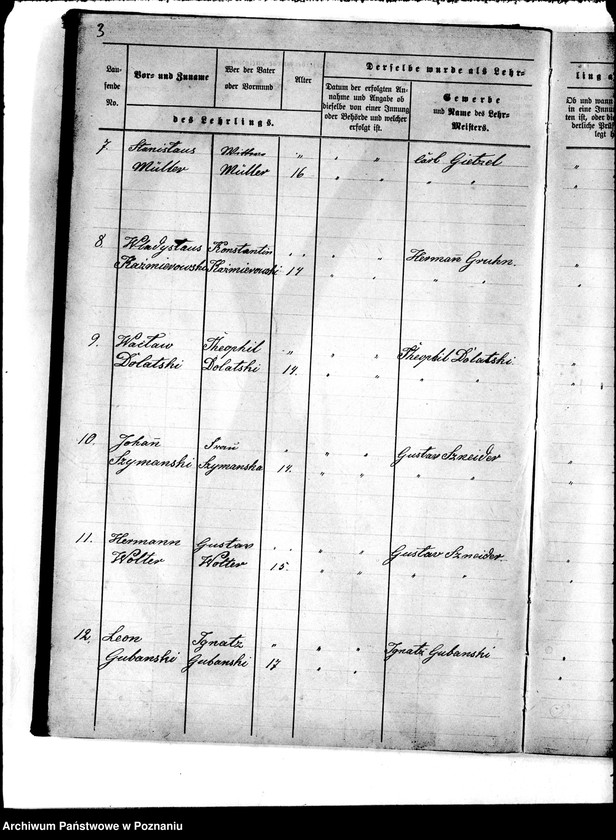 3
Derselbe wurde als Lehr-
Lau-
fende
No.
Vor- und Zuname
Wer der Vater
oder Vormund
Alter
des Lehrlings.
Datum der erfolgten An-
nahme und Angabe ob
dieselbe von einer Innung
oder Behörde und welcher
erfolgt ist.
Gewerbe
und Name des Lehr-
Meisters.
ling a
Ob und wann
in eine Innu
ten ist, oder die
derliche Prüf
legt h
7. Stanislaus " " " Carl Gietzel "
Müller Müller 16 " " " " "
8. Władysłaus Konstantin " " " " Herman Gruhn. "
Kaźmierowski Kaźmierowski 14 " " " " "
9. Wacław Theophil " " " Theophil Dolatski. "
Dolatski Dolatski 14. " " " " "
10. Johan̄ Frau " " " Gustav Szneider "
Szymanski Szymanska 14. " " " " "
11. Hermann Gustav " " " " Gustav Szneider. "
Wolter Wolter 15. " " " " "
12. Leon Ignatz " " " Ignatz Gubanski "
Gubanski Gubanski 17 " " "
Archiwum Państwowe w Poznaniu